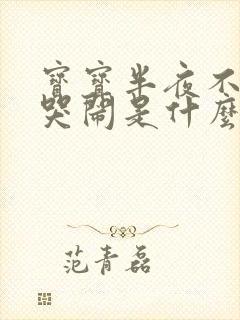 寶寶半夜不
哭鬧是什麼
范青磊